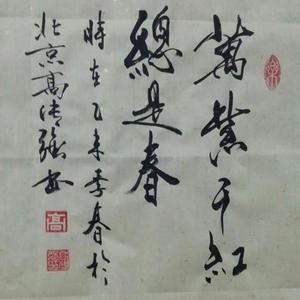 萬紫千紅
總是春
時在乙未季春於
北京高清强书
高